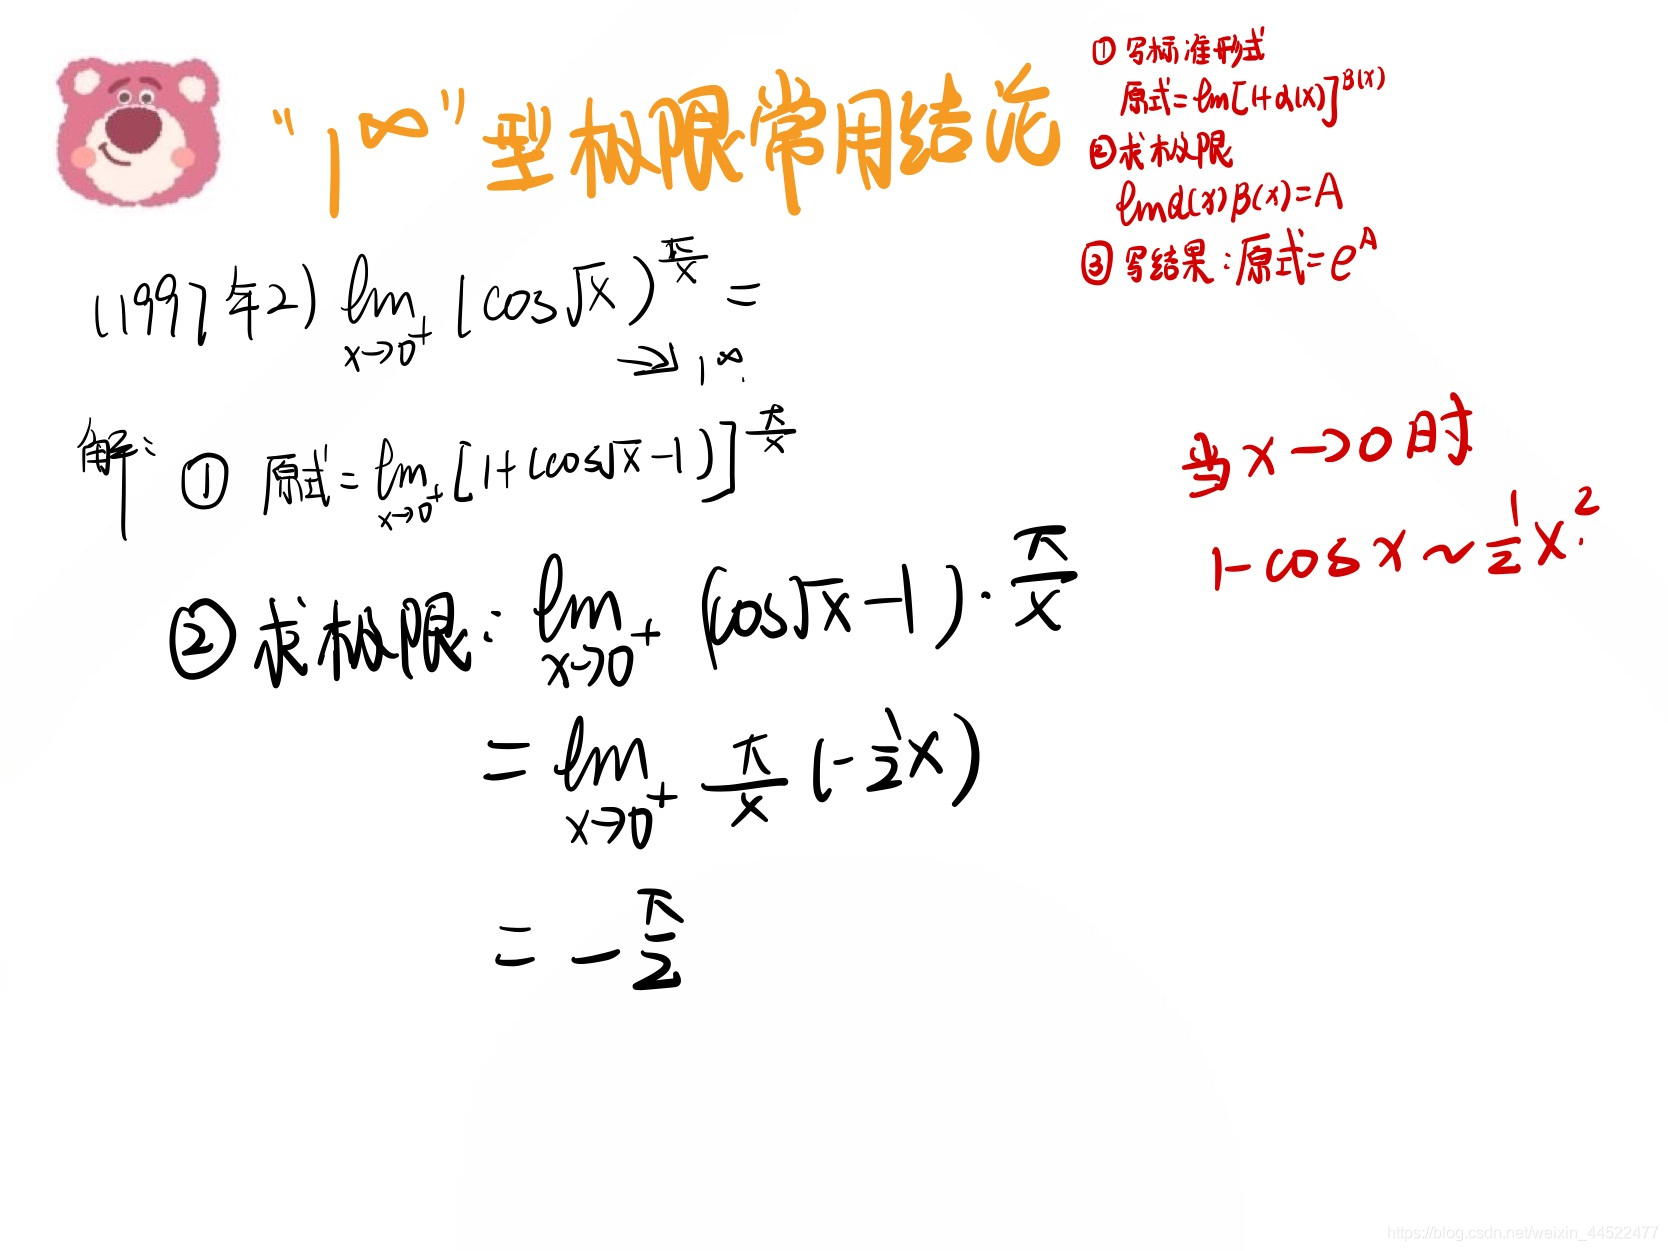 "1^∞"型极限常用结论
① 写标准形式
原式=lim[1+α(x)]^β(x)
②求极限
limα(x)β(x)=A
③写结果:原式=e^A
(1997年2) lim x→0⁺ (cos√x)^(π/x) =
→ 1^∞.
解: ① 原式= lim x→0⁺ [1+(cos√x-1)]^(π/x)
当x→0时
1-cosx~½x².
②求极限: lim x→0⁺ (cos√x-1)·π/x
= lim x→0⁺ π/x (-½x)
= -π/2
https://blog.csdn.net/weixin_44522477